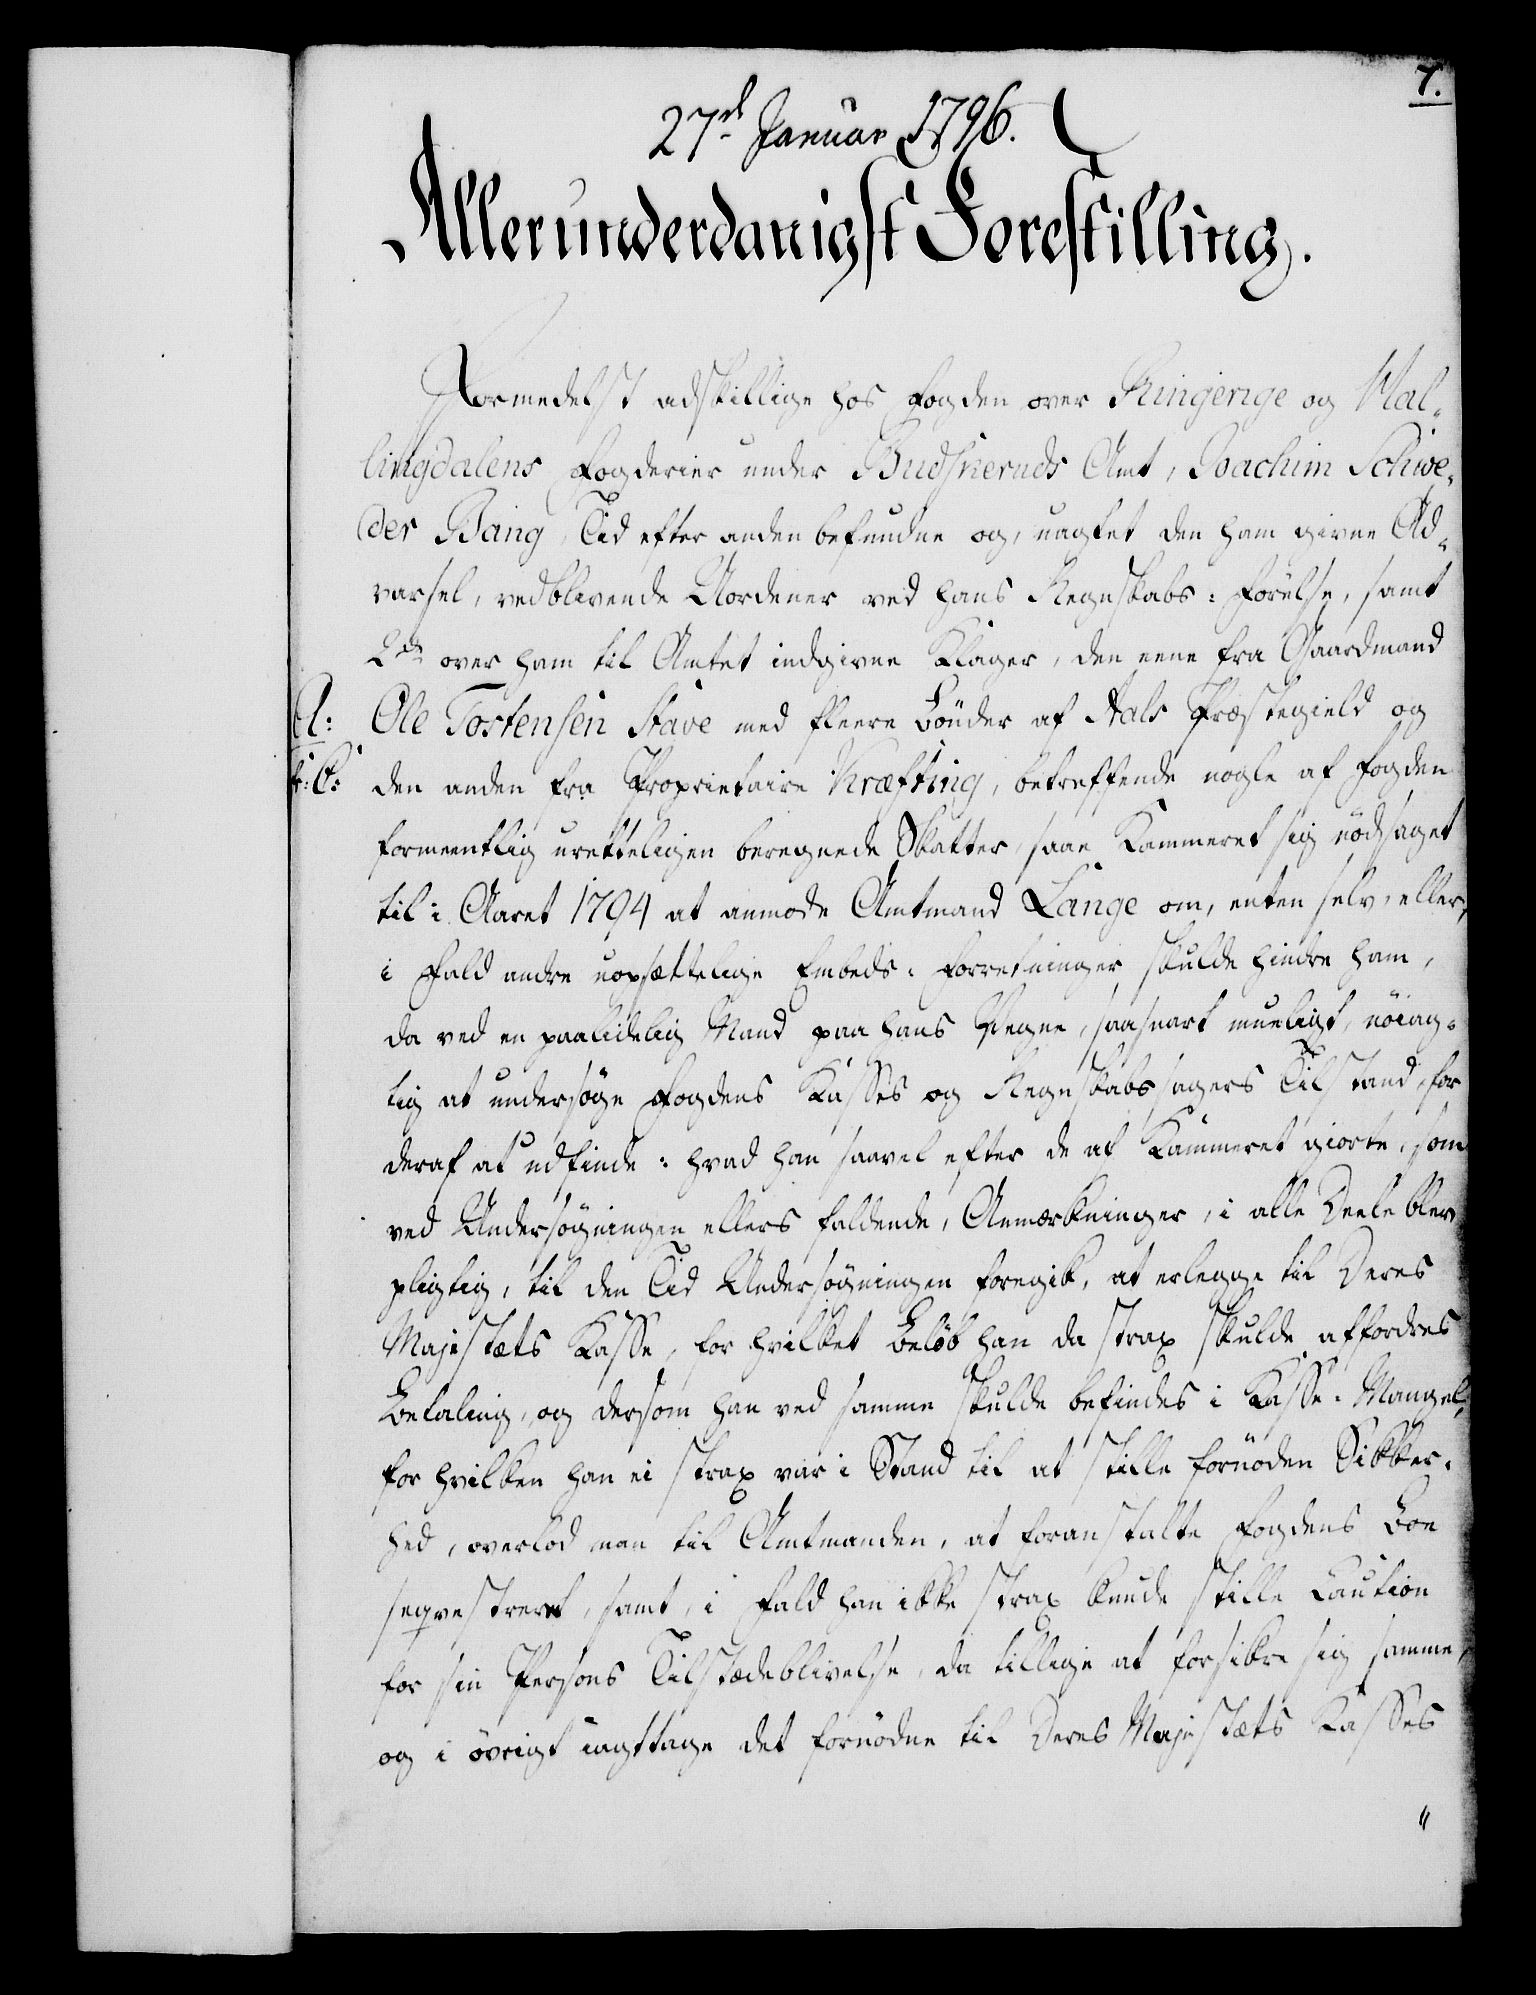 7.
27de Januar 1796.
Allerunderdanigst Forestilling.
Formedelst adskillige hos Fogden over Ringerige og Hal-
lingdalens Fogderier under Budsheruds Amt, Joachim Schwe-
der Bang, Tid efter anden befundne og, uagtet den ham givne Ad-
varsel, vedblivende Uordener ved hans Regnskabs-Førelse, samt
2de over ham til Amtet indgivne Klager, den eene fra Gaardmand
A: Ole Tostensen Stave med fleere Bønder af Aals Præstegield og
den anden fra Proprietaire Kræfting, betreffende nogle af Fogden
formeentlig uretteligen beregnede Skatter, saae Kammeret sig nødsaget
til i Aaret 1794 at anmode Amtmand Lange om, enten selv, eller,
i Fald andre uopsættelige Embeds-Forretninger skulde hindre ham,
da ved en paalidelig Mand paa hans Vegne, saasnart mueligt, nøiag-
tig at undersøge Fogdens Kasses og Regnskabssagers Tilstand, for
deraf at udfinde: hvad han saavel efter de af Kammeret giorte, som
ved Undersøgningen ellers faldende, Anmærkninger, i alle Deele blev
pligtig, til den Tid Undersøgningen foregik, at erlegge til Deres
Majestæts Kasse, for hvilket Beløb han da strax skulde affordres
Betaling, og dersom han ved samme skulde befindes i Kasse-Mangel,
for hvilken han ei strax var i Stand til at stille fornøden Sikker-
hed, overlod man til Amtmanden, at foranstalte Fogdens Boe
seqvestreret, samt, i Fald han ikke strax kunde stille Caution
for sin Persons Tilstædeblivelse, da tillige at forsikre sig samme,
og i øvrigt iagttage det fornødne til Deres Majestæts Kasses
"